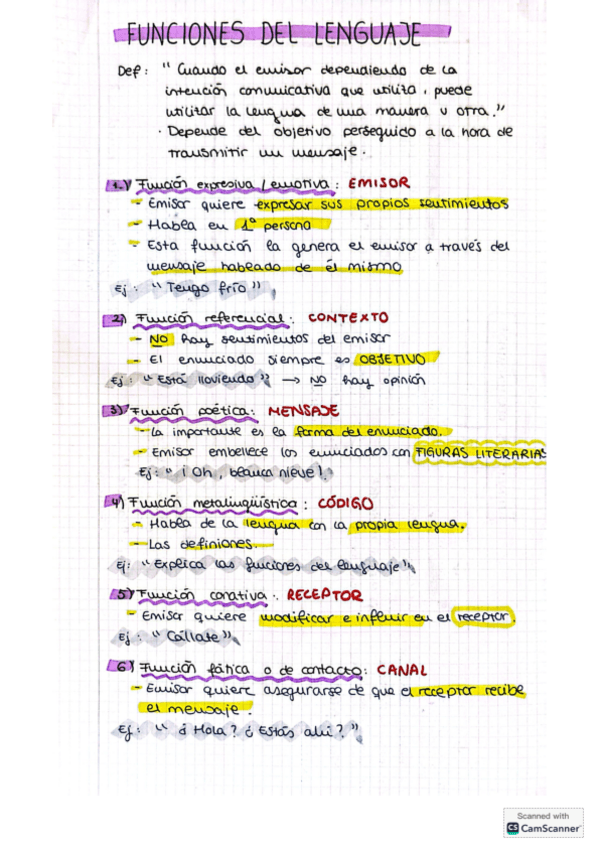 FUNCIONES DEL LENGUAJE
Def: "Cuando el emisor dependiendo de la
intención comunicativa que utilita, puede
utilitar la lengua de una manera u otra."
· Depende del objetivo perseguido a la hora de
transmitir un mensaje.
1.) Función expresiva/emotiva: EMISOR
- Emisor quiere expresar sus propios sentimientos
- Habla en 1º persona
- Esta función la genera el emisor a través del
mensaje hablando de él mismo
Ej: "Tengo frío"
2) Función referencial: CONTEXTO
- NO hay sentimientos del emisor
- El enunciado siempre es OBJETIVO
Ej: "Está lloviendo" → NO hay opinión
3) Función poética: MENSAJE
- La importante es la forma del enunciado.
- Emisor embellece los enunciados con FIGURAS LITERARIAS
Ej: "¡Oh, blanca nieve!
4) Función metalingüística: CÓDIGO
- Habla de la lengua con la propia lengua.
- Las definiones.
Ej: "Explica las funciones del lenguaje"
5) Función conativa: RECEPTOR
- Emisor quiere modificar e influir en el receptor.
Ej: "Cállate"
6) Función fática o de contacto: CANAL
- Emisor quiere asegurarse de que el receptor recibe
el mensaje.
Ej: "¿Hola? ¿Estás ahí?"
Scanned with
CS CamScanner